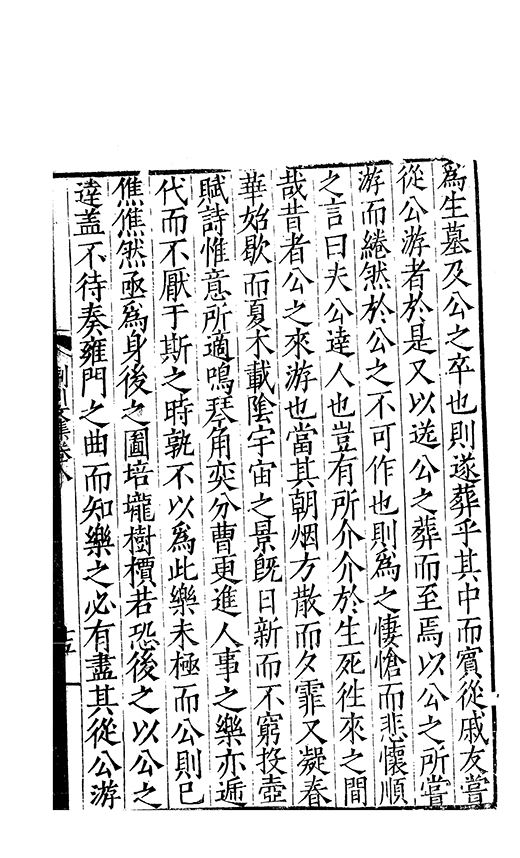 爲生墓及公之卒也則遂葬乎其中而賓從戚友嘗
從公游者於是又以送公之葬而至焉以公之所嘗
游而綣然於公之不可作也則爲之悽愴而悲懷順
之言曰夫公達人也豈有所介介於生死徃來之間
哉昔者公之來游也當其朝烟方散而夕霏又凝春
華始歇而夏木載陰宇宙之景旣日新而不窮投壺
賦詩惟意所適鳴琴角奕分曹更進人事之樂亦遞
代而不厭于斯之時孰不以爲此樂未極而公則已
僬僬然亟爲身後之圖培壠樹檟若恐後之以公之
達盖不待奏雍門之曲而知樂之必有盡其從公游
荆川文集卷八
十五